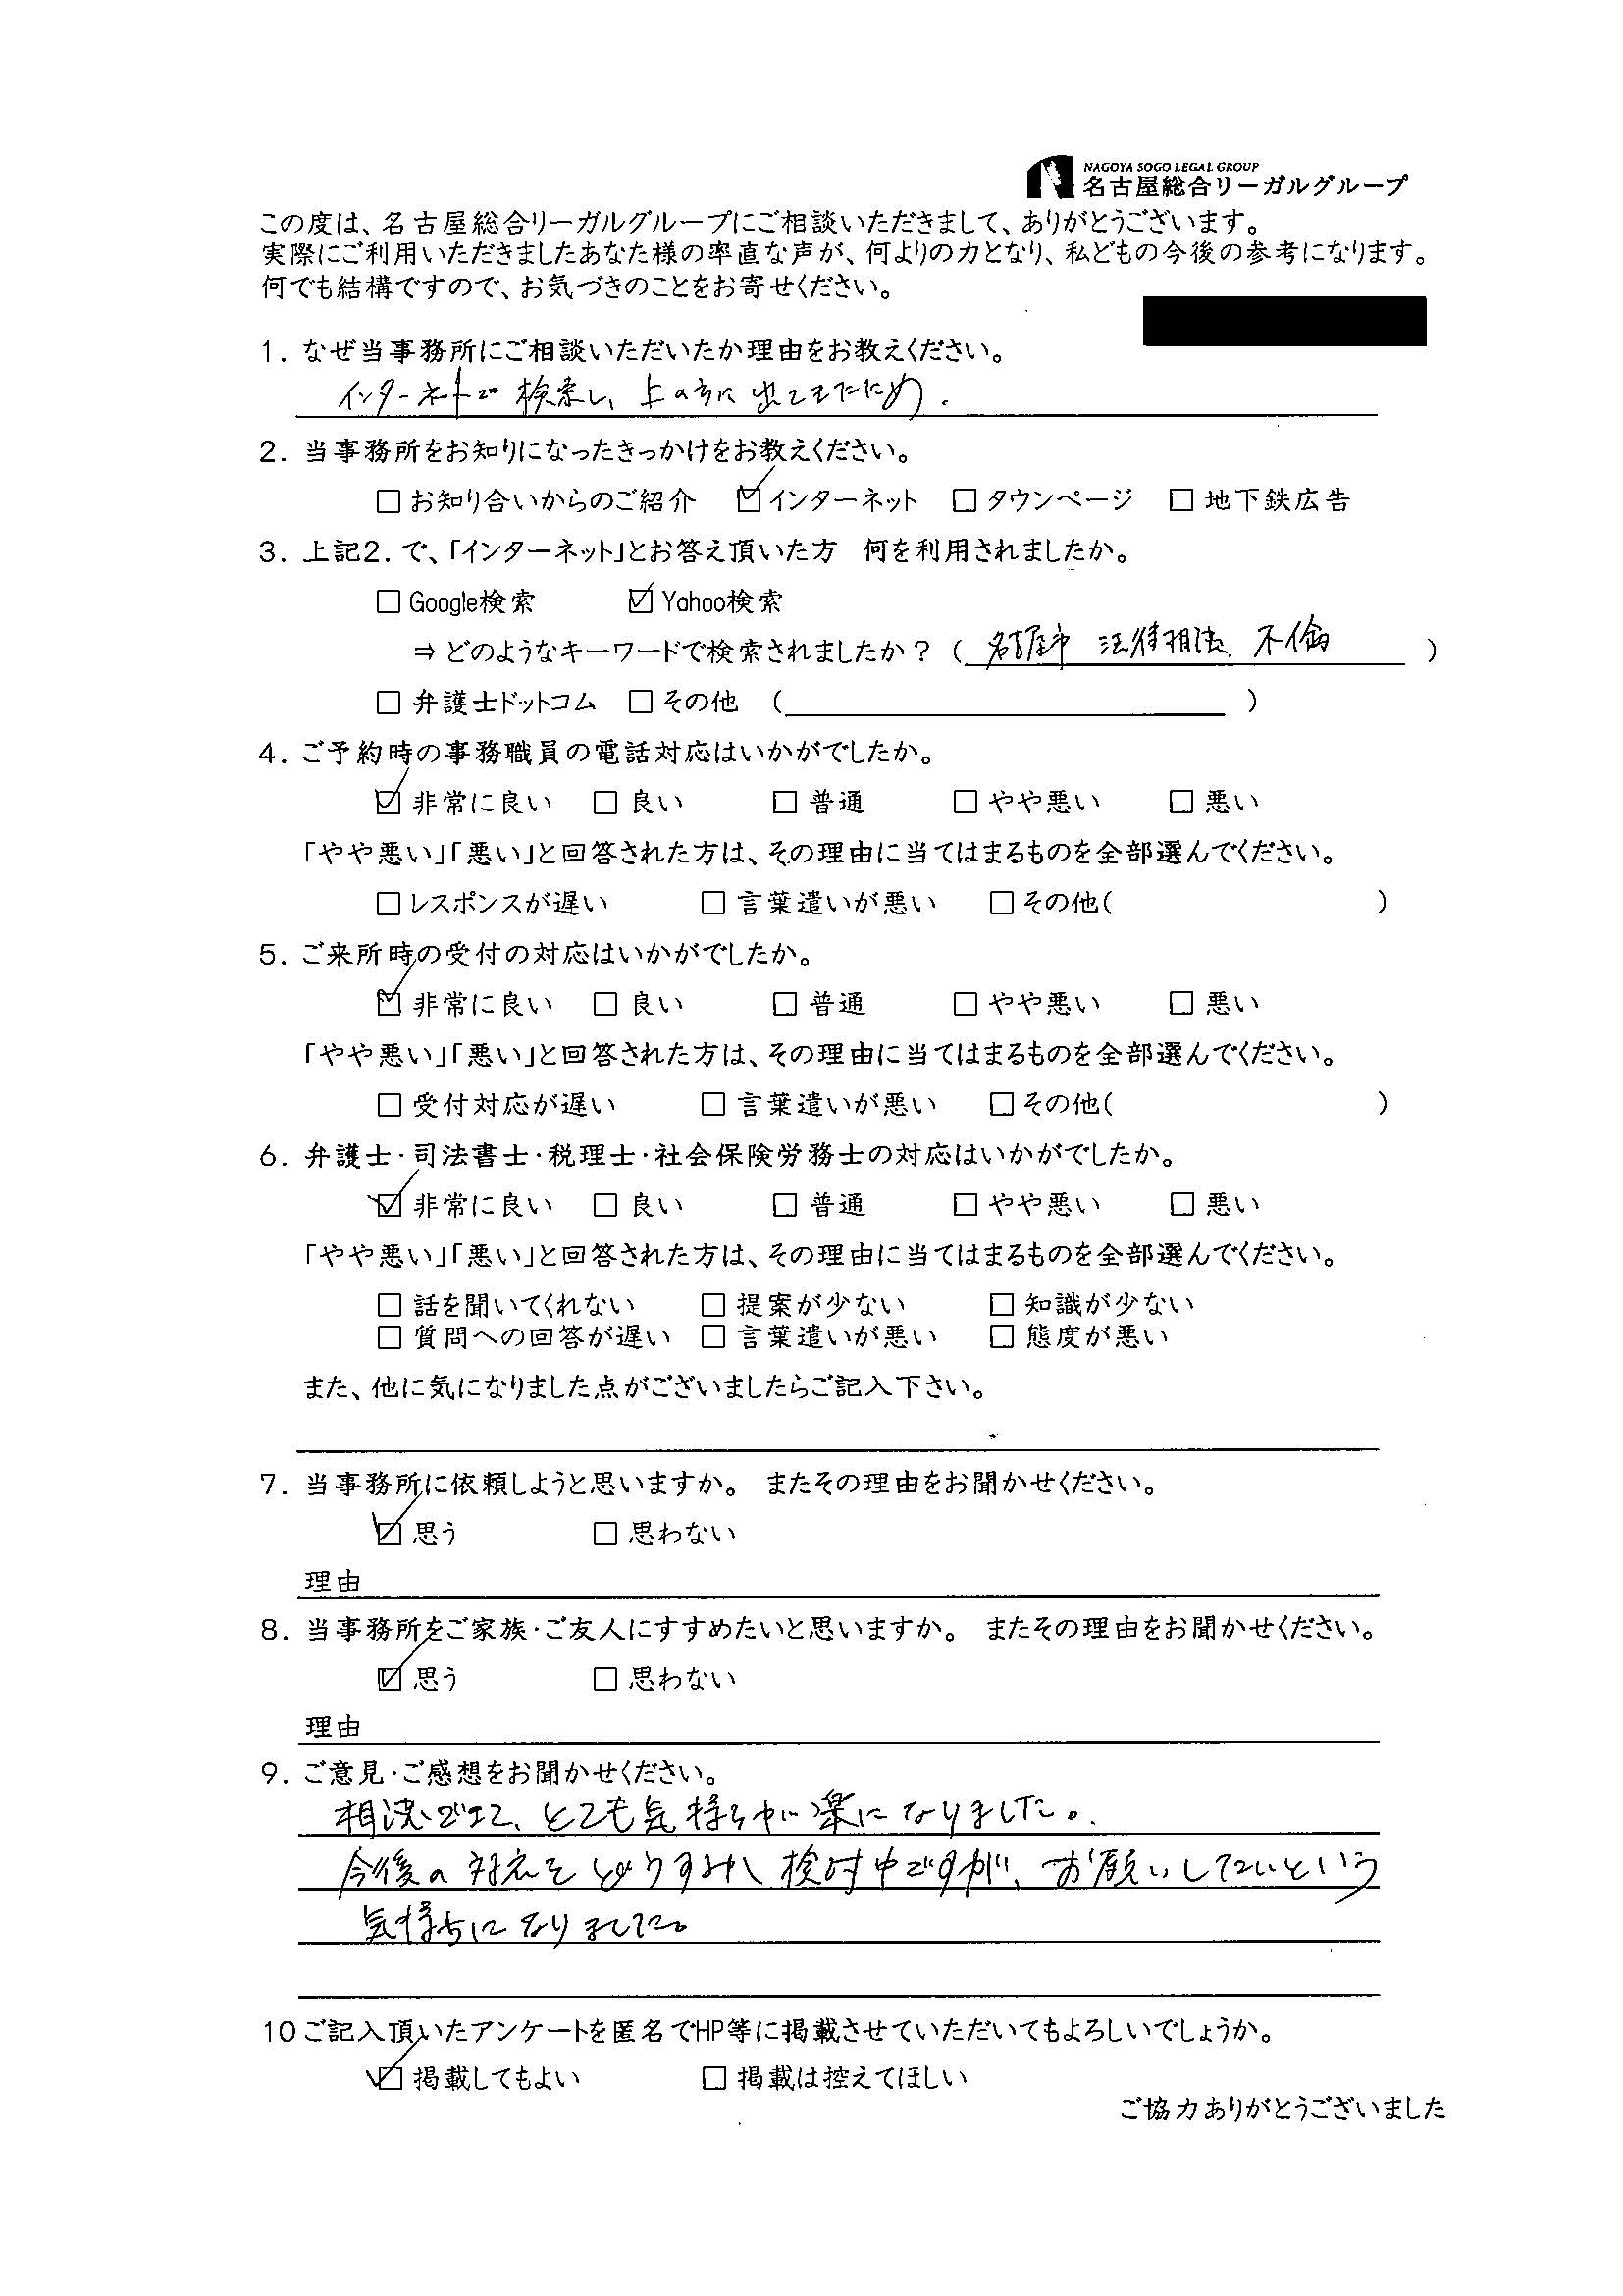 NAGOYA SOGO LEGAL GROUP
名古屋総合リーガルグループ
この度は、名古屋総合リーガルグループにご相談いただきまして、ありがとうございます。
実際にご利用いただきましたあなた様の率直な声が、何よりの力となり、私どもの今後の参考になります。
何でも結構ですので、お気づきのことをお寄せください。
1. なぜ当事務所にご相談いただいたか理由をお教えください。
インターネットで検索し、上の方に出てきたため.
2. 当事務所をお知りになったきっかけをお教えください。
□ お知り合いからのご紹介 ☑ インターネット □ タウンページ □ 地下鉄広告
3. 上記2. で、「インターネット」とお答え頂いた方 何を利用されましたか。
□ Google検索 ☑ Yahoo検索
⇒ どのようなキーワードで検索されましたか? ( 名古屋市 法律相談 不倫 )
□ 弁護士ドットコム □ その他 ( )
4. ご予約時の事務職員の電話対応はいかがでしたか。
☑ 非常に良い □ 良い □ 普通 □ やや悪い □ 悪い
「やや悪い」「悪い」と回答された方は、その理由に当てはまるものを全部選んでください。
□ レスポンスが遅い □ 言葉遣いが悪い □ その他( )
5. ご来所時の受付の対応はいかがでしたか。
☑ 非常に良い □ 良い □ 普通 □ やや悪い □ 悪い
「やや悪い」「悪い」と回答された方は、その理由に当てはまるものを全部選んでください。
□ 受付対応が遅い □ 言葉遣いが悪い □ その他( )
6. 弁護士・司法書士・税理士・社会保険労務士の対応はいかがでしたか。
☑ 非常に良い □ 良い □ 普通 □ やや悪い □ 悪い
「やや悪い」「悪い」と回答された方は、その理由に当てはまるものを全部選んでください。
□ 話を聞いてくれない □ 提案が少ない □ 知識が少ない
□ 質問への回答が遅い □ 言葉遣いが悪い □ 態度が悪い
また、他に気になりました点がございましたらご記入下さい。
7. 当事務所に依頼しようと思いますか。 またその理由をお聞かせください。
☑ 思う □ 思わない
理由
8. 当事務所をご家族・ご友人にすすめたいと思いますか。 またその理由をお聞かせください。
☑ 思う □ 思わない
理由
9. ご意見・ご感想をお聞かせください。
相談できて、とても気持ちが楽になりました。
今後の対応をどうするか検討中ですが、お願いしたいという
気持ちになりました。
10ご記入頂いたアンケートを匿名でHP等に掲載させていただいてもよろしいでしょうか。
☑ 掲載してもよい □ 掲載は控えてほしい
ご協力ありがとうございました